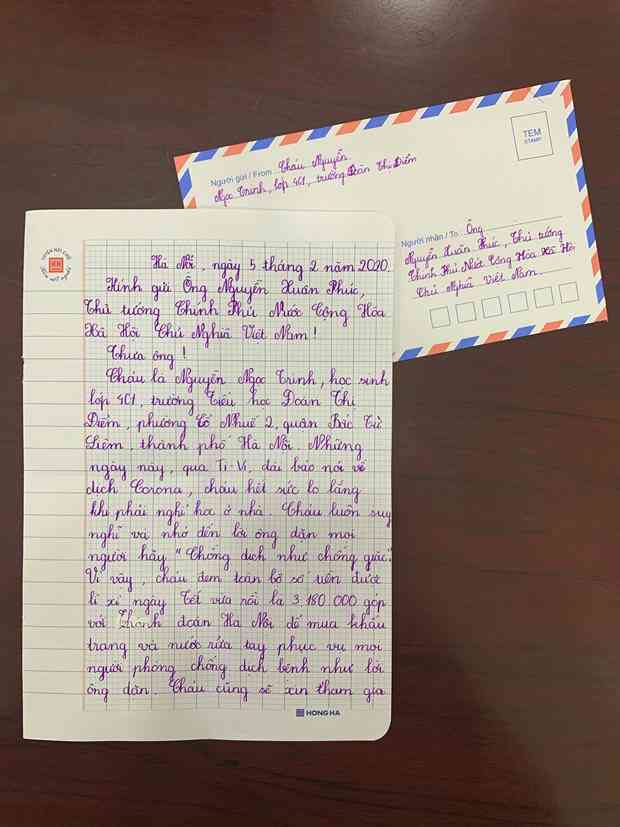 TEM
STAMP
Người gửi / From Cháu Nguyễn
Ngọc Trinh, lớp 4C1, trường Đoàn Thị Điểm
Người nhận / To Ông
Nguyễn Xuân Phúc, Thủ tướng
Chính Phủ Nước Cộng Hòa Xã Hội
Chủ Nghĩa Việt Nam
Hà Nội, ngày 5 tháng 2 năm 2020.
Kính gửi Ông Nguyễn Xuân Phúc,
Thủ tướng Chính Phủ Nước Cộng Hòa
Xã Hội Chủ Nghĩa Việt Nam!
Thưa ông!
Cháu là Nguyễn Ngọc Trinh, học sinh
lớp 4C1, trường Tiểu học Đoàn Thị
Điểm, phường Cổ Nhuế 2, quận Bắc Từ
Liêm, thành phố Hà Nội. Những
ngày này, qua Ti-Vi, đài báo nói về
dịch Corona, cháu hết sức lo lắng
khi phải nghỉ học ở nhà. Cháu luôn suy
nghĩ và nhớ đến lời ông dặn mọi
người hãy "Chống dịch như chống giặc".
Vì vậy, cháu đem toàn bộ số tiền được
lì xì ngày Tết vừa rồi là 3.180.000 góp
với Thành đoàn Hà Nội để mua khẩu
trang và nước rửa tay phục vụ mọi
người phòng chống dịch bệnh như lời
ông dặn. Cháu cũng sẽ xin tham gia
HONG HA